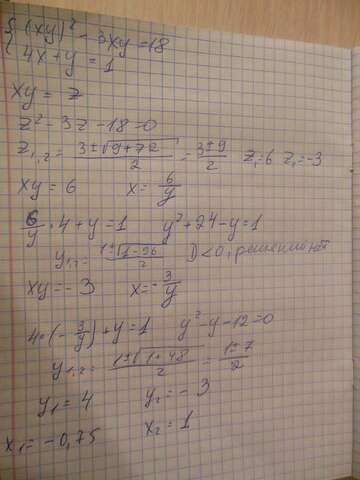 { (xy)² - 3xy = 18
4x + y = 1
xy = z
z² - 3z - 18 = 0
z₁,₂ = (3 ± √(9 + 72))/2 = (3 ± 9)/2 z₁ = 6 z₁ = -3
xy = 6 x = 6/y
6/y · 4 + y = 1 y² + 24 - y = 1
y₁,₂ = (1 ± √(1 - 96))/2 D < 0, решений нет
xy = -3 x = -3/y
4 · (-3/y) + y = 1 y² - y - 12 = 0
y₁,₂ = (1 ± √(1 + 48))/2 = (1 ± 7)/2
y₁ = 4 y₂ = -3
x₁ = -0,75 x₂ = 1